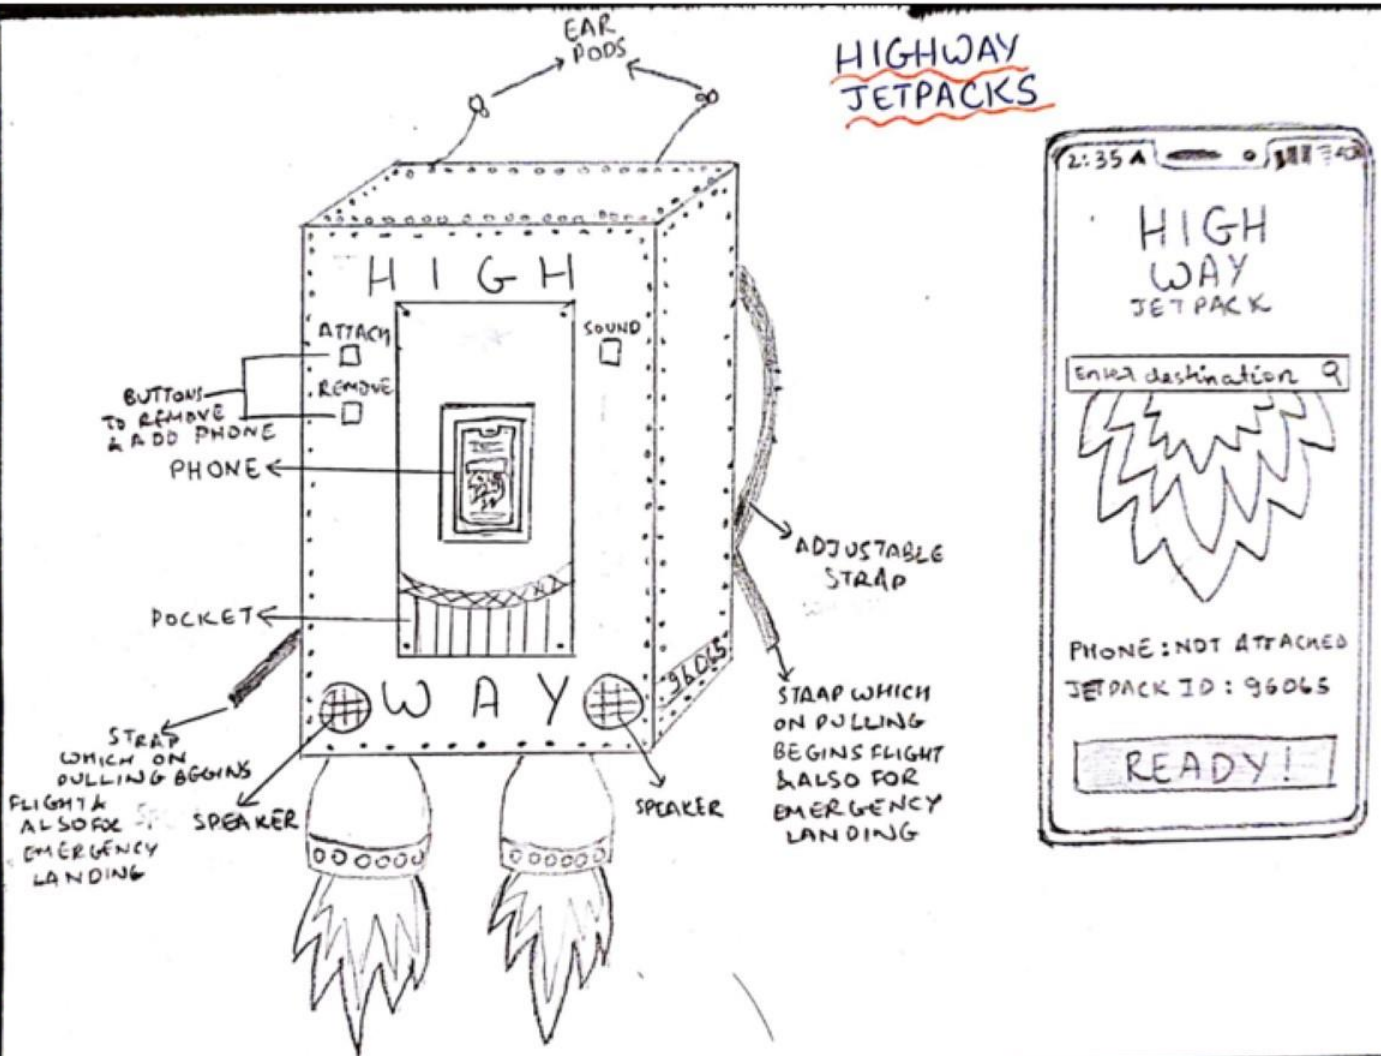 EAR
PODS
HIGHWAY
JETPACKS
HIGH
ATTACH
SOUND
REMOVE
BUTTONS
TO REMOVE
& ADD PHONE
PHONE
POCKET
ADJUSTABLE
STRAP
96065
WAY
STRAP
WHICH ON
PULLING BEGINS
FLIGHT &
ALSO FOR
EMERGENCY
LANDING
SPEAKER
SPEAKER
STRAP WHICH
ON PULLING
BEGINS FLIGHT
& ALSO FOR
EMERGENCY
LANDING
2:35
HIGH
WAY
JETPACK
Enter destination
PHONE: NOT ATTACHED
JETPACK ID: 96065
READY!